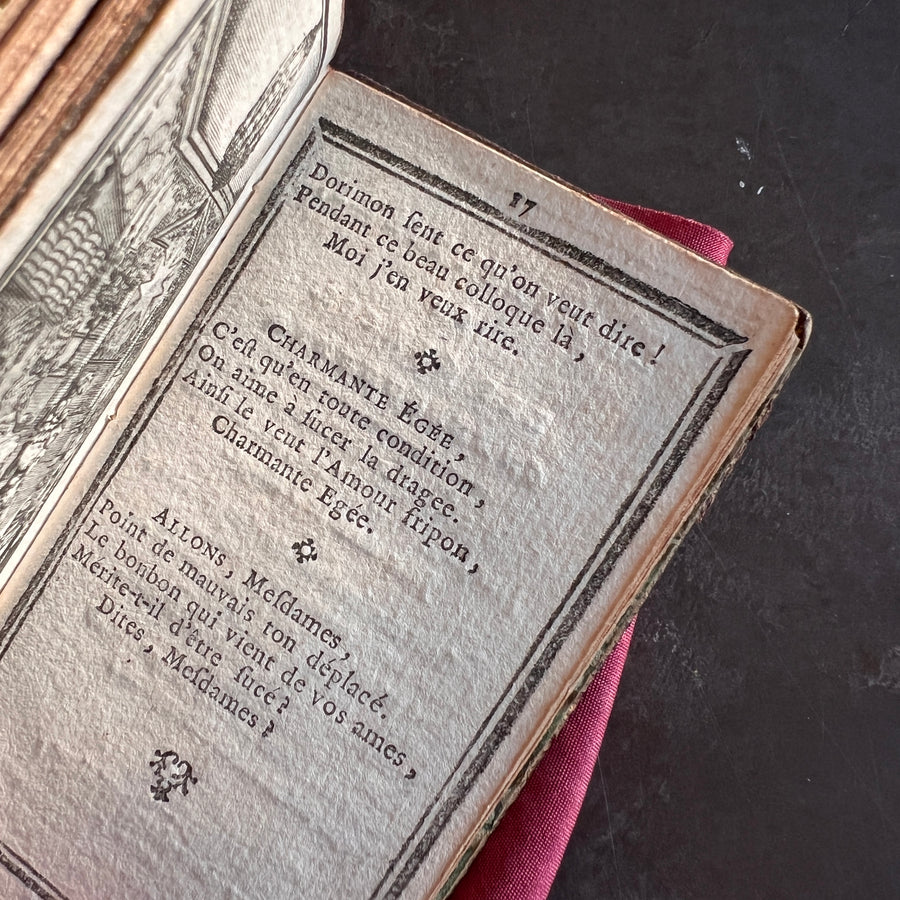 17
Dorimon ſent ce qu'on veut dire !
Pendant ce beau colloque là ,
Moi j'en veux rire.
CHARMANTE ÉGÉE ,
C'eſt qu'en toute condition ,
On aime à ſucer la dragee.
Ainſi le veut l'Amour fripon ,
Charmante Egée.
ALLONS , Meſdames ,
Point de mauvais ton déplacé.
Le bonbon qui vient de vos ames ,
Mérite-t-il d'être ſucé ?
Dites , Meſdames ?